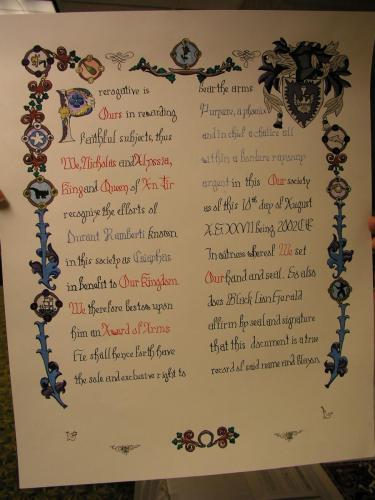 Prerogative is
Ours in rewarding
faithful subjects, thus
We, Nicholas and Alyssia,
King and Queen of An Tir
recognize the efforts of
Durant Ramberti known
in this society as Caiaphas
in benefit to Our Kingdom
We therefore bestow upon
him an Award of Arms
He shall henceforth have
the sole and exclusive right to
bear the arms
Purpure, a phoenix
and in chief a chalice all
within a bordure rayonny
argent in this Our society
as of this 10th day of August
A.S. XXXVII being 2002 CE
In witness whereof We set
Our hand and seal. So also
does Black Lion Herald
affirm by seal and signature
that this document is a true
record of said name and blazon